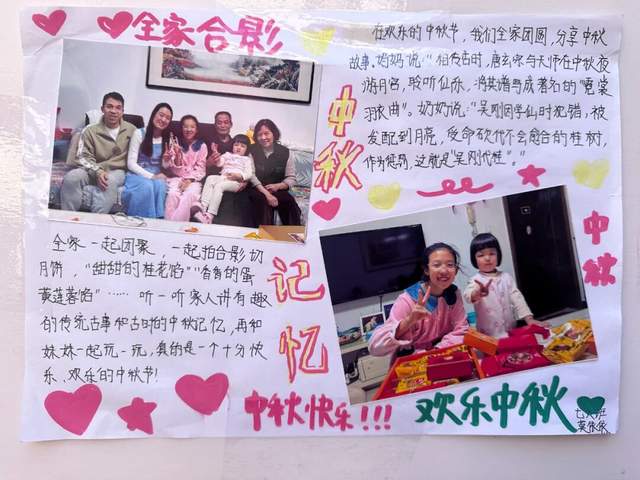 全家合影
在欢乐的中秋节,我们全家团圆,分享中秋
故事。妈妈说:"相传唐时,唐玄宗与天师在中秋夜
游月宫,聆听仙乐,将其谱写成著名的"霓裳
羽衣曲"。奶奶说:"吴刚因学仙时犯错,被
发配到月亮,受命砍伐不会愈合的桂树,
作为惩罚,这就是"吴刚伐桂"。"
中秋
中秋
全家一起团聚,一起拍合影切
月饼,"甜甜的桂花馅""香香的蛋
黄莲蓉馅"……听一听家人讲有趣
的传统古事和古时的中秋记忆,再和
妹妹一起玩一玩,真的是一个十分快
乐、欢乐的中秋节!
记忆
中秋快乐!!!
欢乐中秋